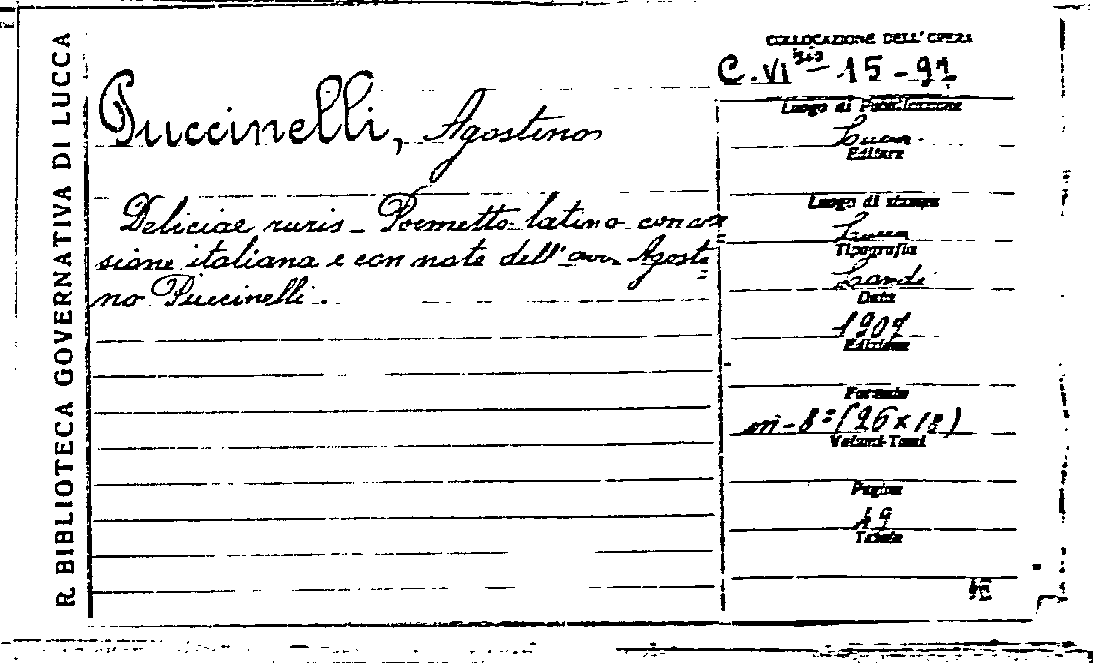 R. BIBLIOTECA GOVERNATIVA DI LUCCA
Puccinelli, Agostino
Deliciae ruris - Poemetto latino con ver=
sione italiana e con note dell' avv. Agosti=
no Puccinelli.
COLLOCAZIONE DELL' OPERA
C. VI 15 - 97
Luogo di Pubblicazione
Lucca
Editore
Luogo di stampa
Lucca
Tipografia
Landi
Data
1907
Edizione
Formato
in - 8º (26 x 18)
Volumi-Tomi
Pagine
49
Tavole